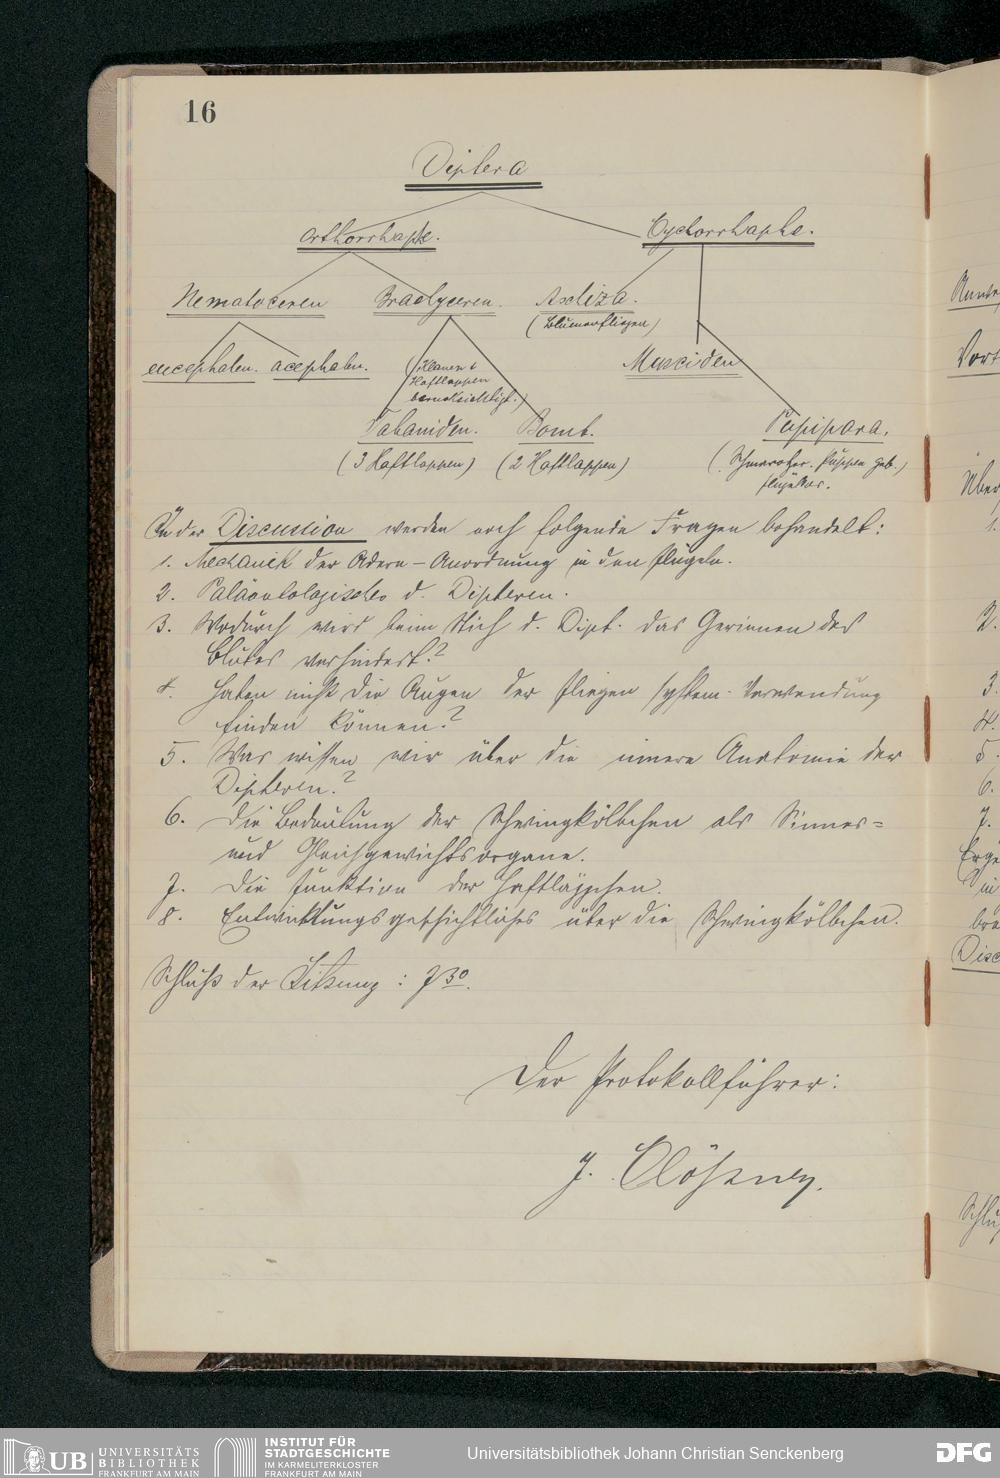 16
Diptera
Orthorrhaphe.
Cyclorrhaphe.
Nematoceren
Brachyceren.
Aschiza.
(Blumenfliegen)
eucephalen. acephalen.
(Klauen &
Haftlappen
berücksichtigt.)
Musciden
Tabaniden.
Bomb.
Pupipara.
(3 Haftlappen)
(2 Haftlappen)
(Schmarotzer. Puppen geb.)
flügellos.
In der Discussion werden noch folgende Fragen behandelt:
1. Mechanik der Adern-Anordnung in den Flügeln.
2. Paläontologisches d. Dipteren.
3. Wodurch wird beim Stich d. Dipt. das Gerinnen des
Blutes verhindert?
4. Haben nicht die Augen der Fliegen system. Verwendung
finden können?
5. Was wissen wir über die innere Anatomie der
Dipteren?
6. Die Bedeutung der Schwingkölbchen als Sinnes-
und Gleichgewichtsorgane.
7. Die Funktion der Haftläppchen.
8. Entwicklungsgeschichtliches über die Schwingkölbchen.
Schluß der Sitzung: 7 30.
Der Protokollführer:
J.
UB UNIVERSITÄTS
BIBLIOTHEK
FRANKFURT AM MAIN
INSTITUT FÜR
STADTGESCHICHTE
IM KARMELITERKLOSTER
FRANKFURT AM MAIN
Universitätsbibliothek Johann Christian Senckenberg
DFG